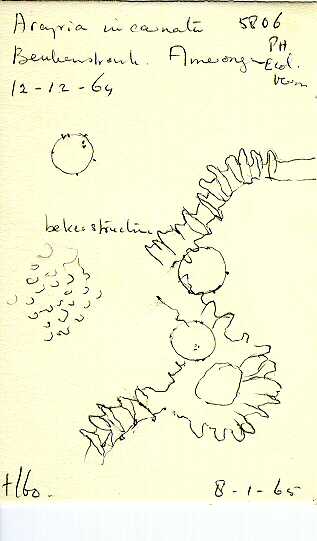 Arcyria incarnata 5806
Beukenstronk. Amerongen PH. Ecol.
12-12-64
bekerstructuur
8-1-65